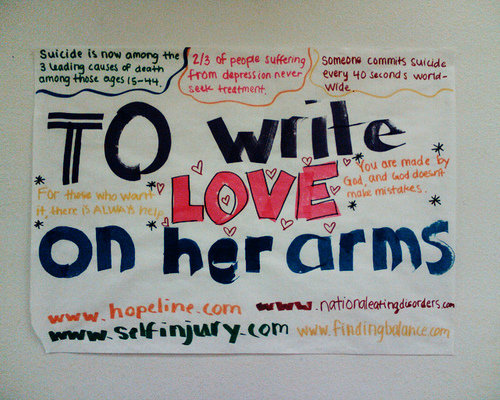 Suicide is now among the
3 leading causes of death
among those ages 15-44.
2/3 of people suffering
from depression never
seek treatment.
Someone commits suicide
every 40 seconds world-
wide.
TO write
LOVE
on her arms
For those who want
it, there is ALWAYS help.
You are made by
God, and God doesn't
make mistakes.
www.hopeline.com
www.nationaleatingdisorders.com
www.selfinjury.com
www.findingbalance.com